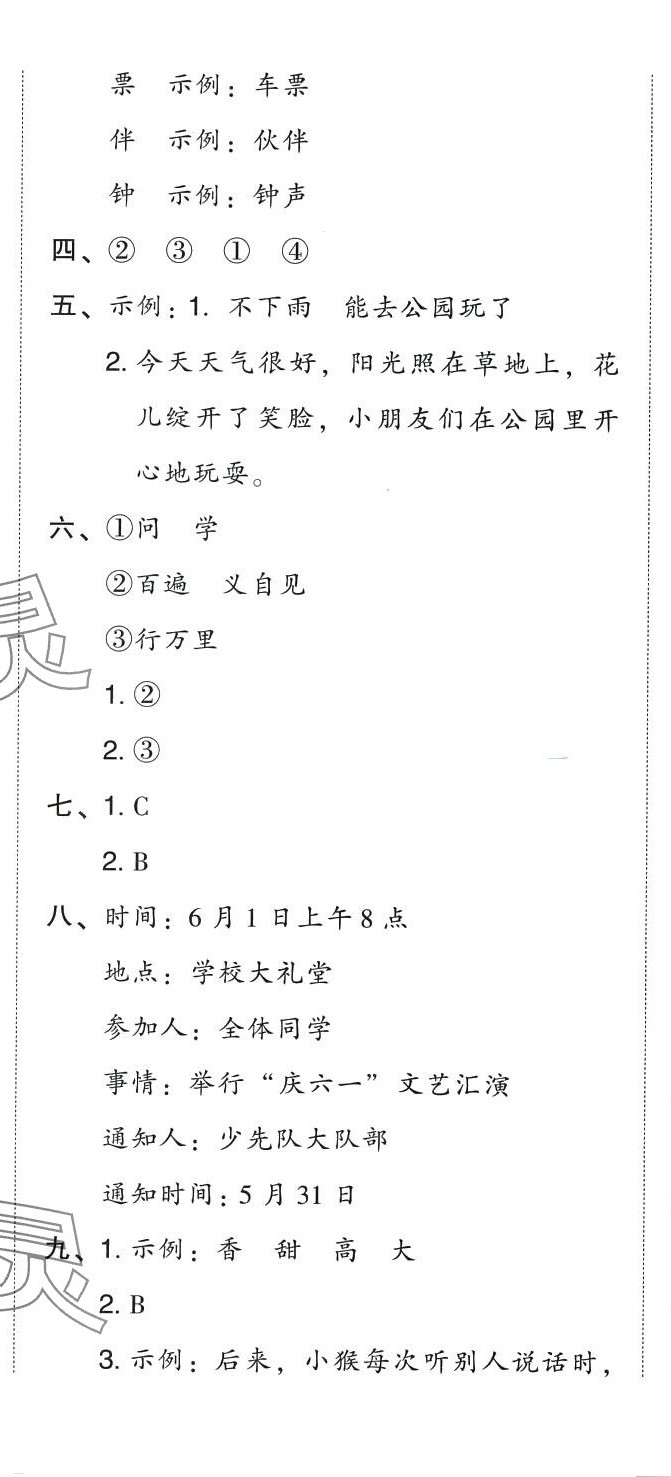 票 示例：车票
伴 示例：伙伴
钟 示例：钟声
四、② ③ ① ④
五、示例：1. 不下雨 能去公园玩了
2. 今天天气很好，阳光照在草地上，花
儿绽开了笑脸，小朋友们在公园里开
心地玩耍。
六、①问 学
②百遍 义自见
③行万里
1. ②
2. ③
七、1. C
2. B
八、时间：6月1日上午8点
地点：学校大礼堂
参加人：全体同学
事情：举行“庆六一”文艺汇演
通知人：少先队大队部
通知时间：5月31日
九、1. 示例：香 甜 高 大
2. B
3. 示例：后来，小猴每次听别人说话时，
灵
灵